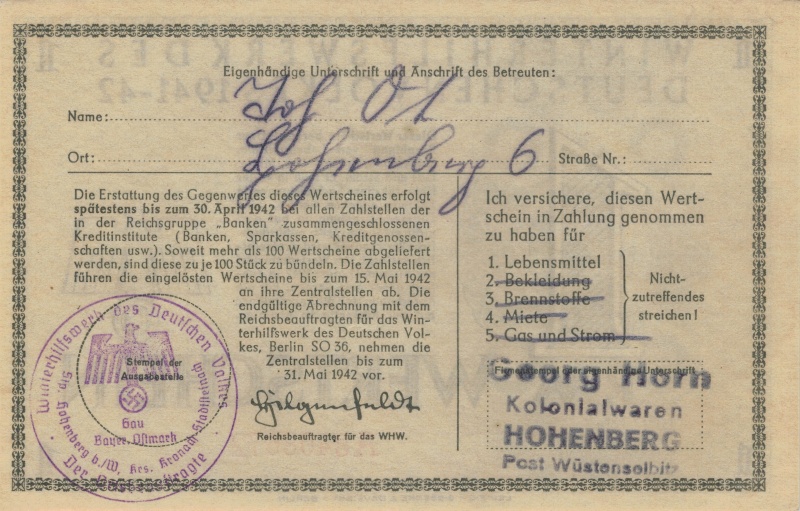 Eigenhändige Unterschrift und Anschrift des Betreuten:
Name: Joh Ot
Ort: Hohenberg 6 Straße Nr.:
Die Erstattung des Gegenwertes dieses Wertscheines erfolgt
spätestens bis zum 30. April 1942 bei allen Zahlstellen der
in der Reichsgruppe „Banken" zusammengeschlossenen
Kreditinstitute (Banken, Sparkassen, Kreditgenossen-
schaften usw.). Soweit mehr als 100 Wertscheine abgeliefert
werden, sind diese zu je 100 Stück zu bündeln. Die Zahlstellen
führen die eingelösten Wertscheine bis zum 15. Mai 1942
an ihre Zentralstellen ab. Die
endgültige Abrechnung mit dem
Reichsbeauftragten für das Win-
terhilfswerk des Deutschen Vol-
kes, Berlin SO 36, nehmen die
Zentralstellen bis zum
31. Mai 1942 vor.
Hilgenfeldt
Reichsbeauftragter für das WHW.
Winterhilfswerk des Deutschen Volkes
Stempel der
Ausgabestelle
Gau
Bayer. Ostmark
Hohenberg b./W. Krs. Kronach-Stadtsteinach
Der Beauftragte
Ich versichere, diesen Wert-
schein in Zahlung genommen
zu haben für
1. Lebensmittel
2. Bekleidung
3. Brennstoffe
4. Miete
5. Gas und Strom
Nicht-
zutreffendes
streichen!
Firmenstempel oder eigenhändige Unterschrift
Georg Horn
Kolonialwaren
HOHENBERG
Post Wüstenselbitz